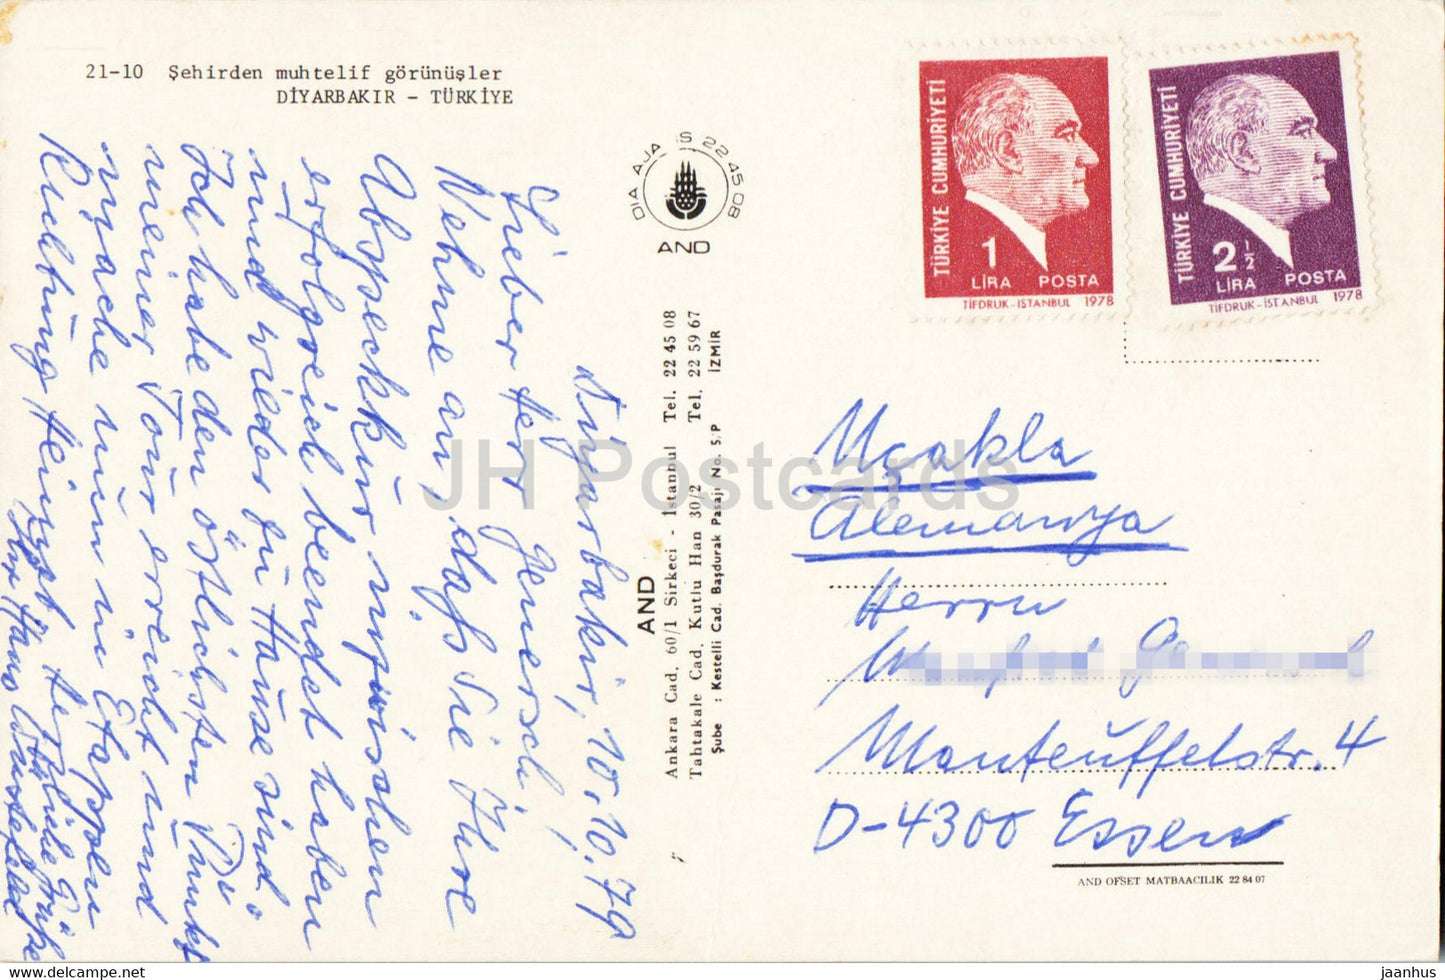 21-10 Şehirden muhtelif görünüşler
DİYARBAKIR - TÜRKİYE
DIA AJANS 22 45 08
AND
Diyarbakir, 10.10.79
Lieber Herr
Nehme an, daß Sie Ihre
inzwischen
erfolgreich beendet haben
und wieder zu Hause sind.
Ich habe den östlichsten Punkt
meiner Tour erreicht und
mache nun in Etappen
Richtung Heimat. Herzliche Grüße
Ihr Hans
AND
Ankara Cad. 60/1 Sirkeci - İstanbul Tel. 22 45 08
Tahtakale Cad. Kutlu Han 30/2 Tel. 22 59 67
Şube : Kestelli Cad. Başdurak Pasajı No. 5/P İZMİR
TÜRKİYE CUMHURİYETİ
1
LİRA POSTA
TİFDRUK-İSTANBUL 1978
TÜRKİYE CUMHURİYETİ
2 1/2
LİRA POSTA
TİFDRUK-İSTANBUL 1978
Uçakla
Alemanya
Herrn
Manteuffelstr. 4
D-4300 Essen
AND OFSET MATBAACILIK 22 84 07
JH Postcards
hipstamp.com
jaanhus